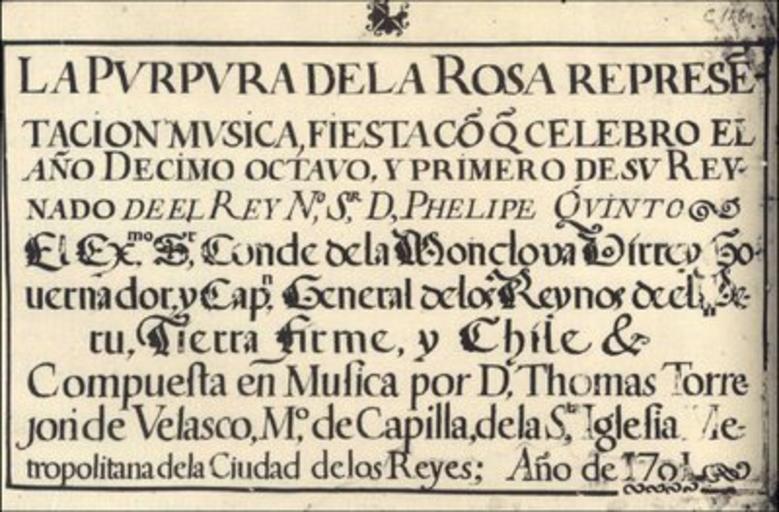 LA PVRPVRA DE LA ROSA REPRESẼ-
TACION MVSICA, FIESTA CÕ Q̃ CELEBRO EL
AÑO DECIMO OCTAVO, Y PRIMERO DE SV REY-
NADO DE EL REY Nº, Sᴿ. D, PHELIPE QVINTO
El Exᵐᵒ. Sʳ, Conde de la Monclova Virrey Go-
uernador, y Capⁿ. General de los Reynos de el Pe-
ru, Tierra firme, y Chile &
Compuesta en Musica por D. Thomas Torre-
jon de Velasco, Mº. de Capilla, de la Sᵗᵃ Iglesia Me-
tropolitana de la Ciudad de los Reyes; Año de 1701